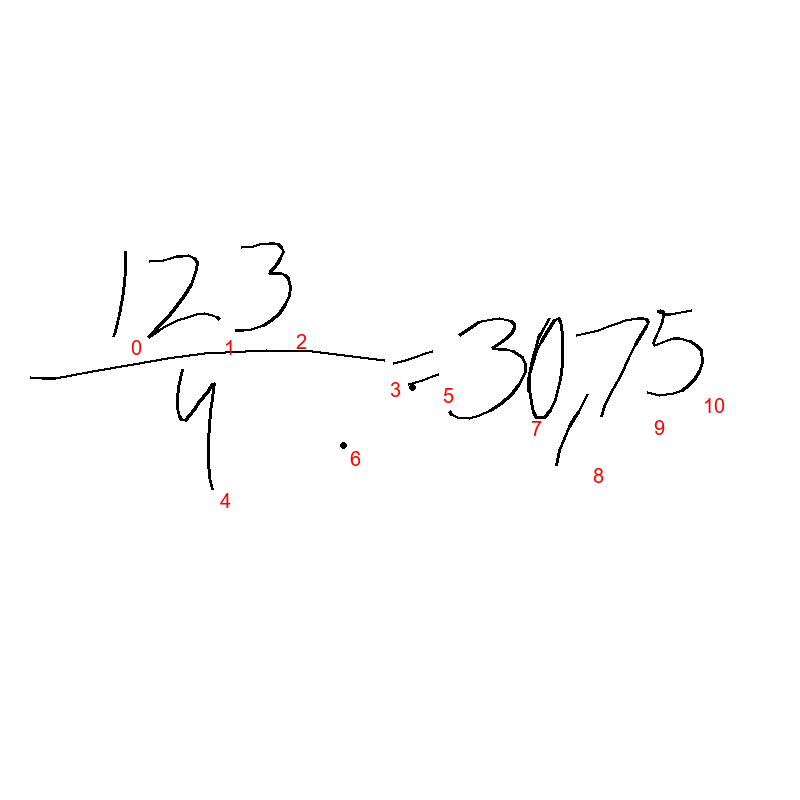 123
4
= 30,75
0 1 2 3 4 5 6 7 8 9 10